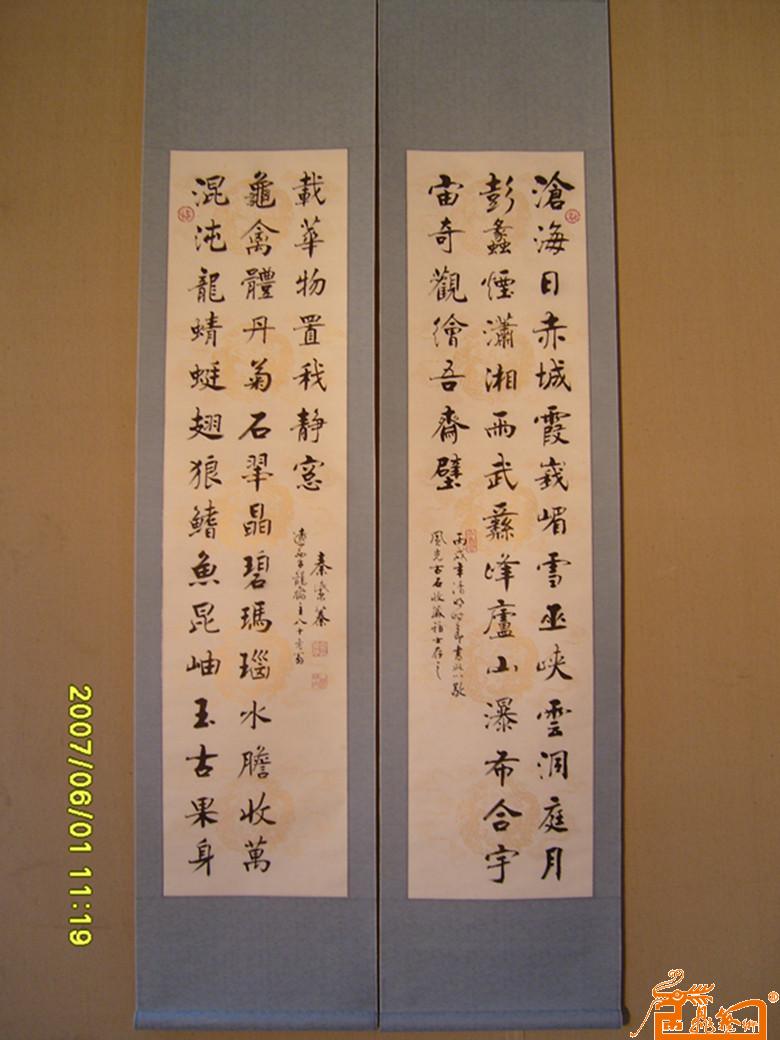 滄海日赤城霞峩嵋雪巫峽雲洞庭月
彭蠡煙瀟湘雨武彞峰廬山瀑布合宇
宙奇觀繪吾齋壁
丙戌年清明
混沌龍蜻蜓翅狼鰭魚昆岫玉古果身
龜禽體丹菊石翠晶碧瑪瑙水膽收萬
載華物置我靜窓
秦
2007/06/01 11:19